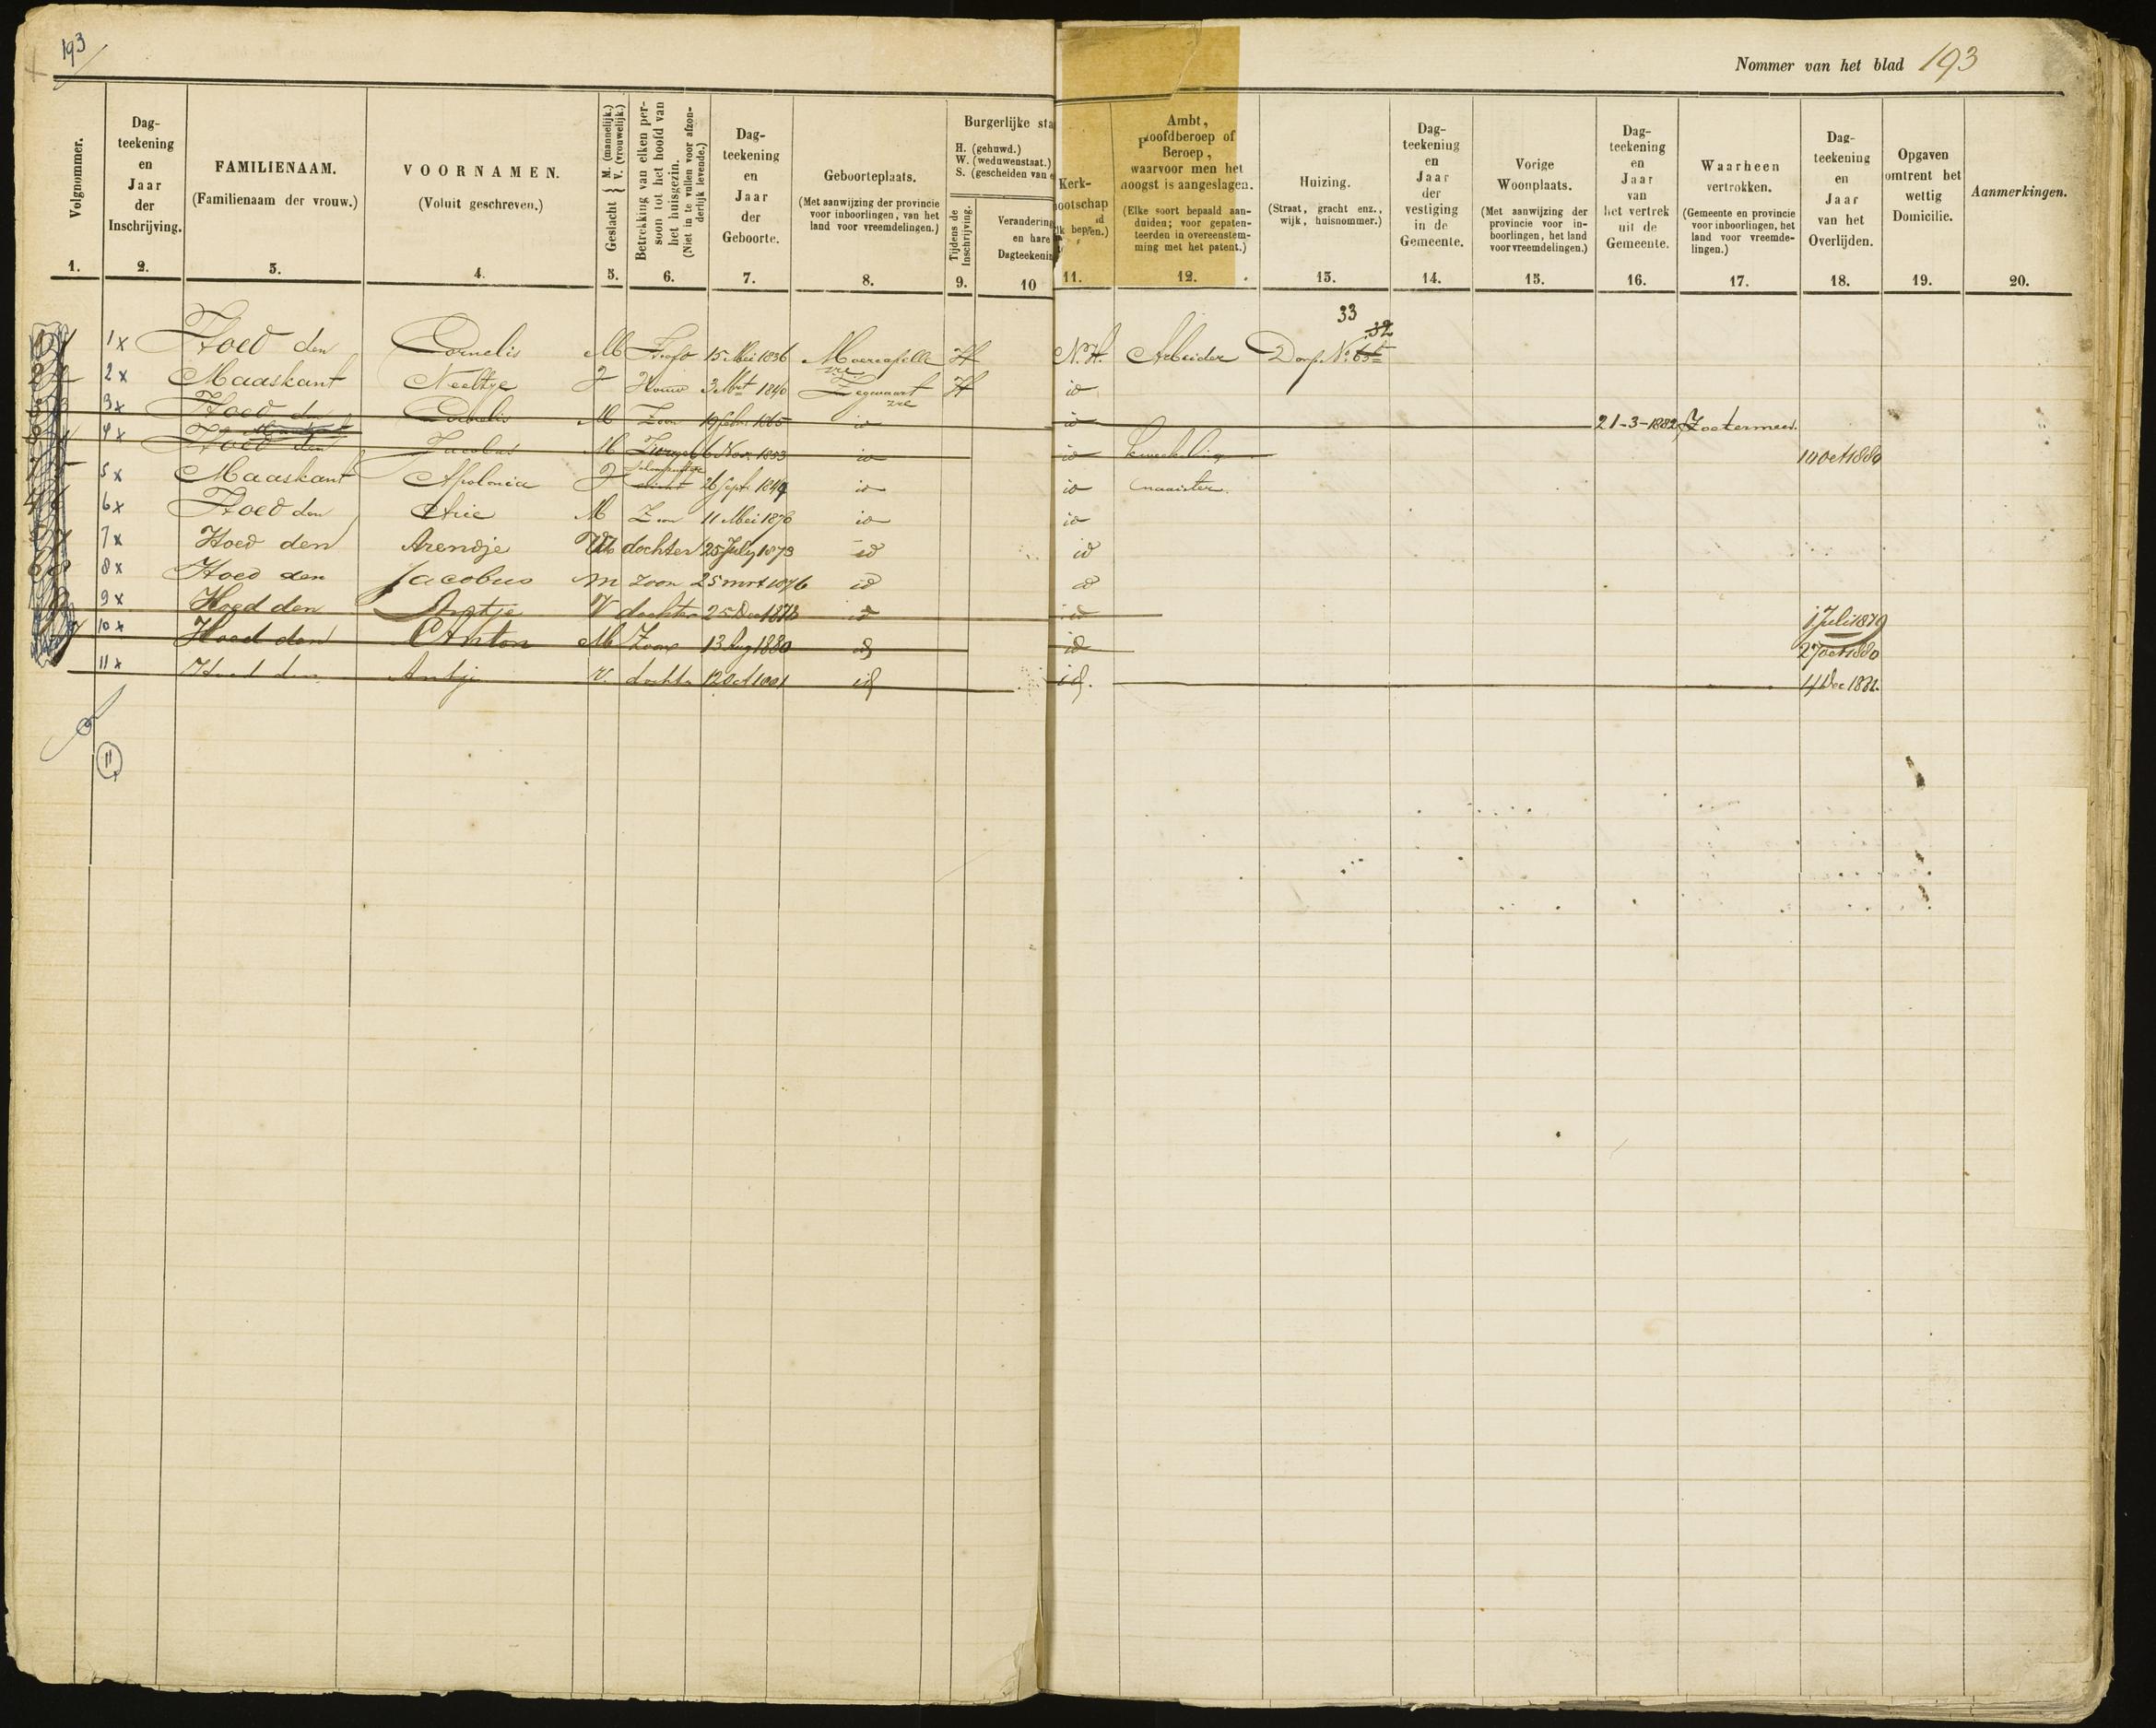 193
Nommer van het blad 193
Volgnommer.
1.
Dag-
teekening
en
Jaar
der
Inschrijving.
2.
FAMILIENAAM.
(Familienaam der vrouw.)
3.
VOORNAMEN.
(Voluit geschreven.)
4.
Geslacht { M. (mannelijk.)
V. (vrouwelijk.)
5.
Betrekking van elken per-
soon tot het hoofd van
het huisgezin.
(Niet in te vullen voor afzon-
derlijk levende.)
6.
Dag-
teekening
en
Jaar
der
Geboorte.
7.
Geboorteplaats.
(Met aanwijzing der provincie
voor inboorlingen, van het
land voor vreemdelingen.)
8.
Burgerlijke sta
H. (gehuwd.)
W. (weduwenstaat.)
S. (gescheiden van e
Tijdens de
Inschrijving.
9.
Verandering
en hare
Dagteekenin
10
Kerk-
ootschap
11.
Ambt,
Hoofdberoep of
Beroep,
waarvoor men het
hoogst is aangeslagen.
(Elke soort bepaald aan-
duiden; voor gepaten-
teerden in overeenstem-
ming met het patent.)
12.
Huizing.
(Straat, gracht enz.,
wijk, huisnommer.)
13.
Dag-
teekening
en
Jaar
der
vestiging
in de
Gemeente.
14.
Vorige
Woonplaats.
(Met aanwijzing der
provincie voor in-
boorlingen, het land
voor vreemdelingen.)
15.
Dag-
teekening
en
Jaar
van
het vertrek
uit de
Gemeente.
16.
Waarheen
vertrokken.
(Gemeente en provincie
voor inboorlingen, het
land voor vreemde-
lingen.)
17.
Dag-
teekening
en
Jaar
van het
Overlijden.
18.
Opgaven
omtrent het
wettig
Domicilie.
19.
Aanmerkingen.
20.
33
32
1x Hoed den Cornelis M Hoofd 15 Mei 1836 Moercapelle H N.H. Arbeider Dorp No 65
2x Maaskant Neeltje V Vrouw 3 Mrt 1840 Zegwaart H id
3x Hoed den Cornelis M Zoon 19 Febr 1865 id id 21-3-1882 Zoetermeer
4x Hoed den Jacobus M 6 Nov. 1853 id id Kweekeling 14 Oct 1880
5x Maaskant Apolonia V 26 Sept 1849 id id naaister
6x Hoed den Arie M Zoon 11 Mei 1870 id id
7x Hoed den Arendje V dochter 25 July 1873 id id
8x Hoed den Jacobus M zoon 25 mrt 1876 id id
9x Hoed den Antje V dochter 25 Dec 1878 id id 1 Juli 1879
10x Hoed den Anton M Zoon 13 Aug 1880 id id 27 Oct 1880
11x Hoed den Antje V. dochter 12 Oct 1881 id id. 14 Dec 1881.
11